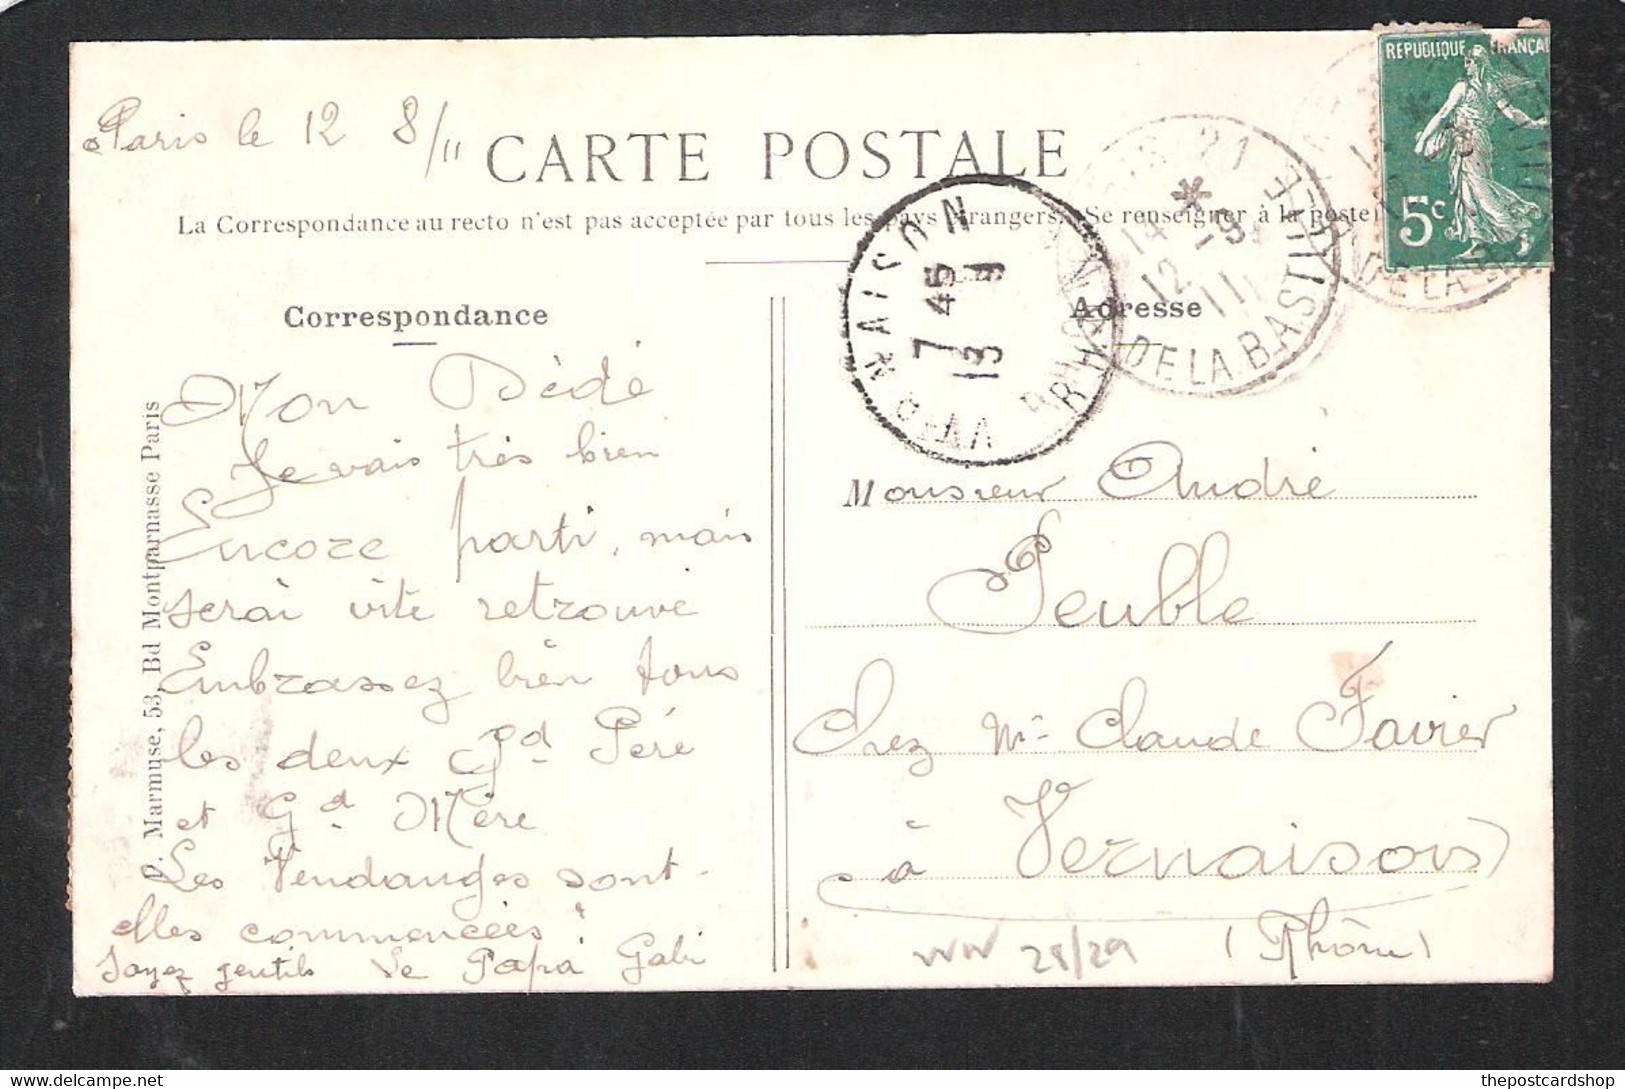 Paris le 12 8/11
CARTE POSTALE
La Correspondance au recto n'est pas acceptée par tous les pays étrangers. Se renseigner à la poste
REPUBLIQUE FRANÇAI
5c
21
14 * -9
12 11
DE LA BASTILLE
VERNAISON
7 45
13 9
RHONE
DE LA B
Correspondance
Adresse
Mon Dédé
Je vais très bien
Encore parti, mais
serai vite retrouvé
Embrassez bien tous
les deux Gd Père
et Gd Mère
Les Vendanges sont-
elles commencées
Soyez gentils Le Papa Gabi
. Marmuse, 53, Bd Montparnasse Paris
Monsieur André
Peuble
Chez Mr Claude Favier
à Vernaison
(Rhône)
28/29
thepostcardshop